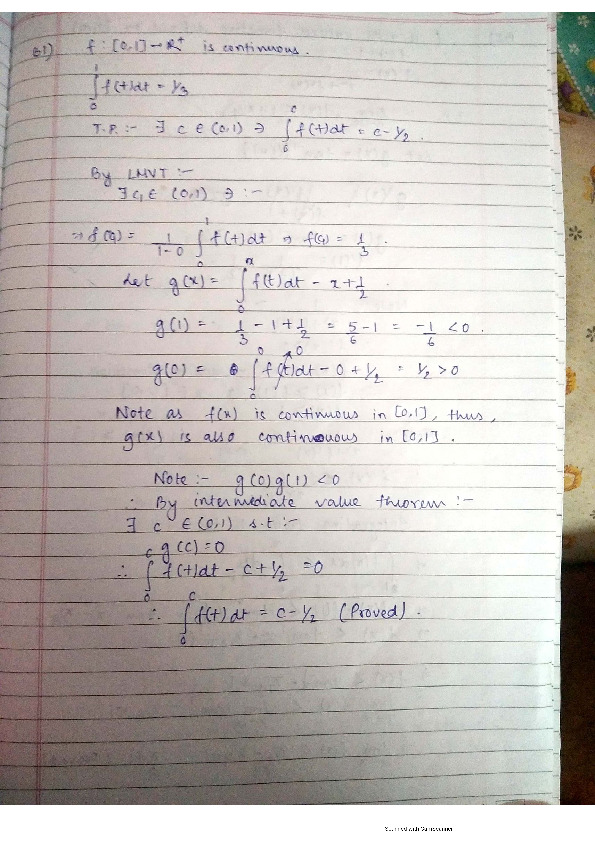 61) f : [0,1] → R⁺ is continuous.
∫₀¹ f(t)dt = 1/3
T.P. :- ∃ c ∈ (0,1) ∋ ∫₀ᶜ f(t)dt = c - 1/2 .
By LMVT :-
∃ c₁ ∈ (0,1) ∋ :-
⇒ f(c₁) = 1/(1-0) ∫₀¹ f(t)dt ⇒ f(c₁) = 1/3 .
Let g(x) = ∫₀ˣ f(t)dt - x + 1/2 .
g(1) = 1/3 - 1 + 1/2 = 5/6 - 1 = -1/6 < 0 .
g(0) = ∫₀⁰ f(t)dt - 0 + 1/2 = 1/2 > 0
Note as f(x) is continuous in [0,1], thus,
g(x) is also continuous in [0,1] .
Note :- g(0)g(1) < 0
∴ By intermediate value theorem :-
∃ c ∈ (0,1) s.t :-
g(c) = 0
∴ ∫₀ᶜ f(t)dt - c + 1/2 = 0
∴ ∫₀ᶜ f(t)dt = c - 1/2 (Proved) .
Scanned with CamScanner